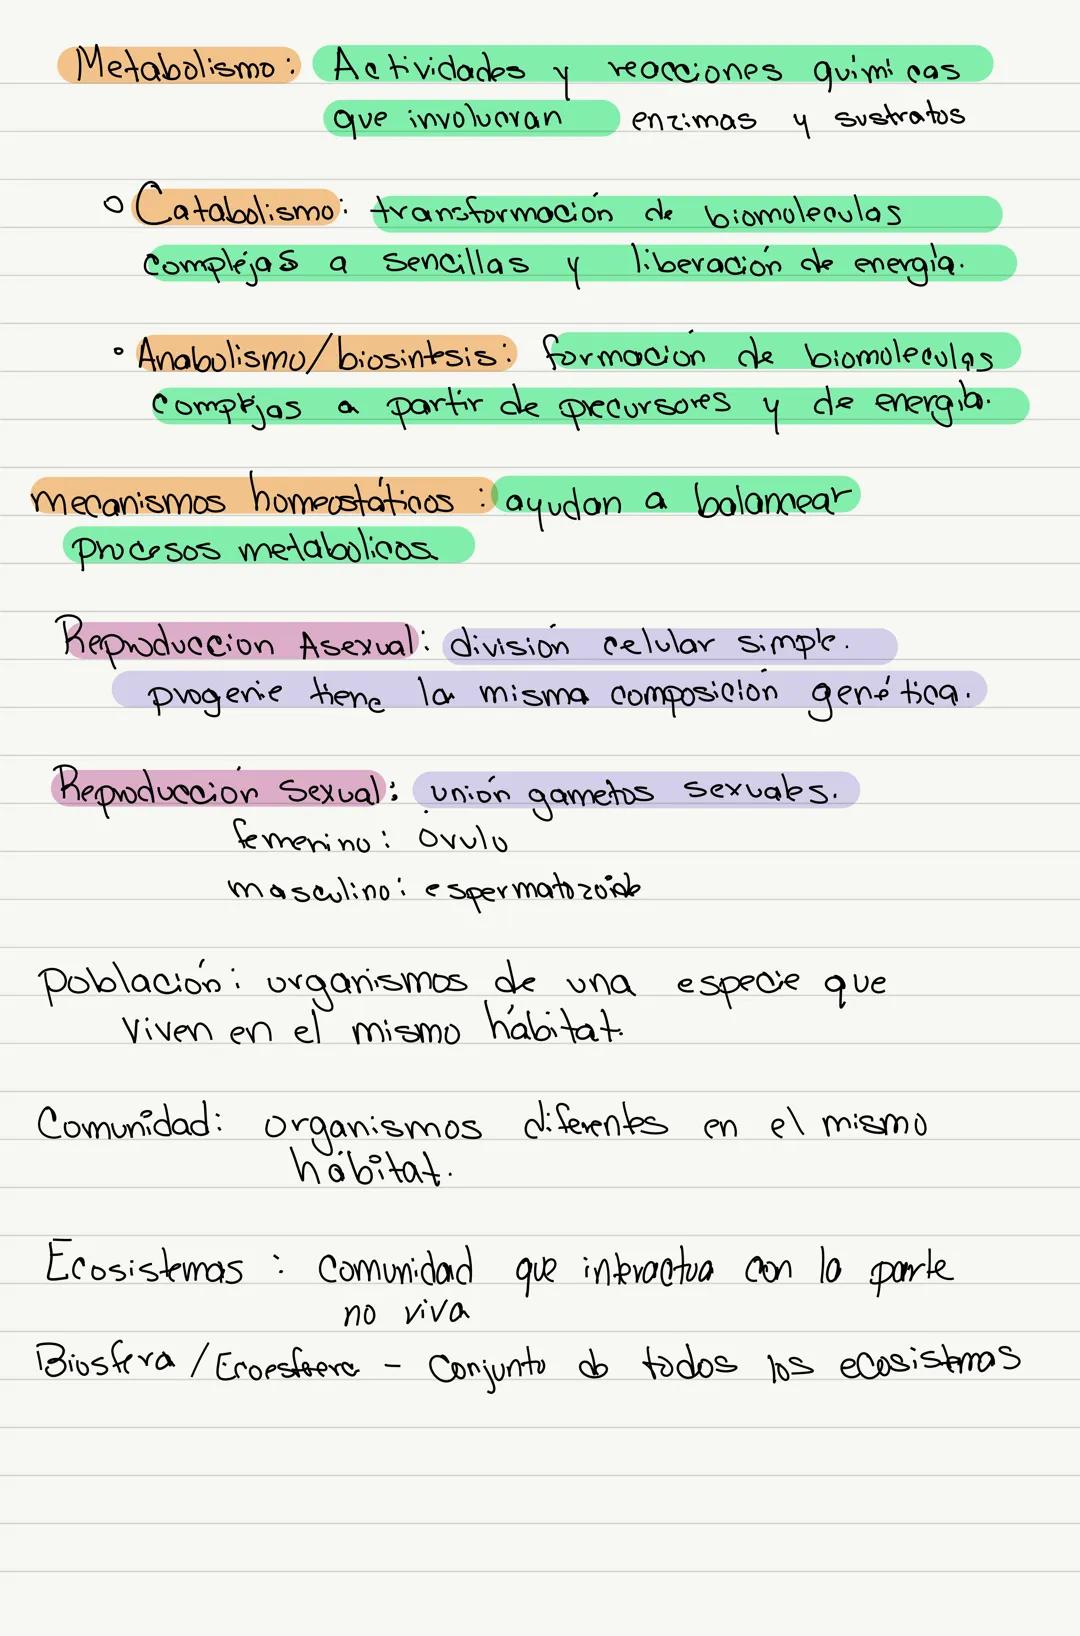 Metabolismo: Actividades y reacciones químicas
que involucran enzimas y sustratos
◦ Catabolismo: transformación de biomoleculas
complejas a sencillas y liberación de energía.
• Anabolismo/biosintesis: formación de biomoleculas
complejas a partir de precursores y de energía.
mecanismos homeostáticos: ayudan a balancear
procesos metabolicos
Reproduccion Asexual: división celular simple.
progenie tiene la misma composición genética.
Reproducción Sexual: unión gametos sexuales.
femenino: óvulo
masculino: espermatozoide
Población: organismos de una especie que
viven en el mismo hábitat.
Comunidad: organismos diferentes en el mismo
hábitat.
Ecosistemas: Comunidad que interactua con la parte
no viva
Biosfera / Ecoesfera - Conjunto de todos los ecosistemas